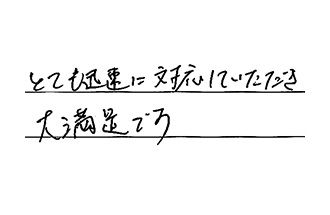 とても迅速に対応していただき
大満足です